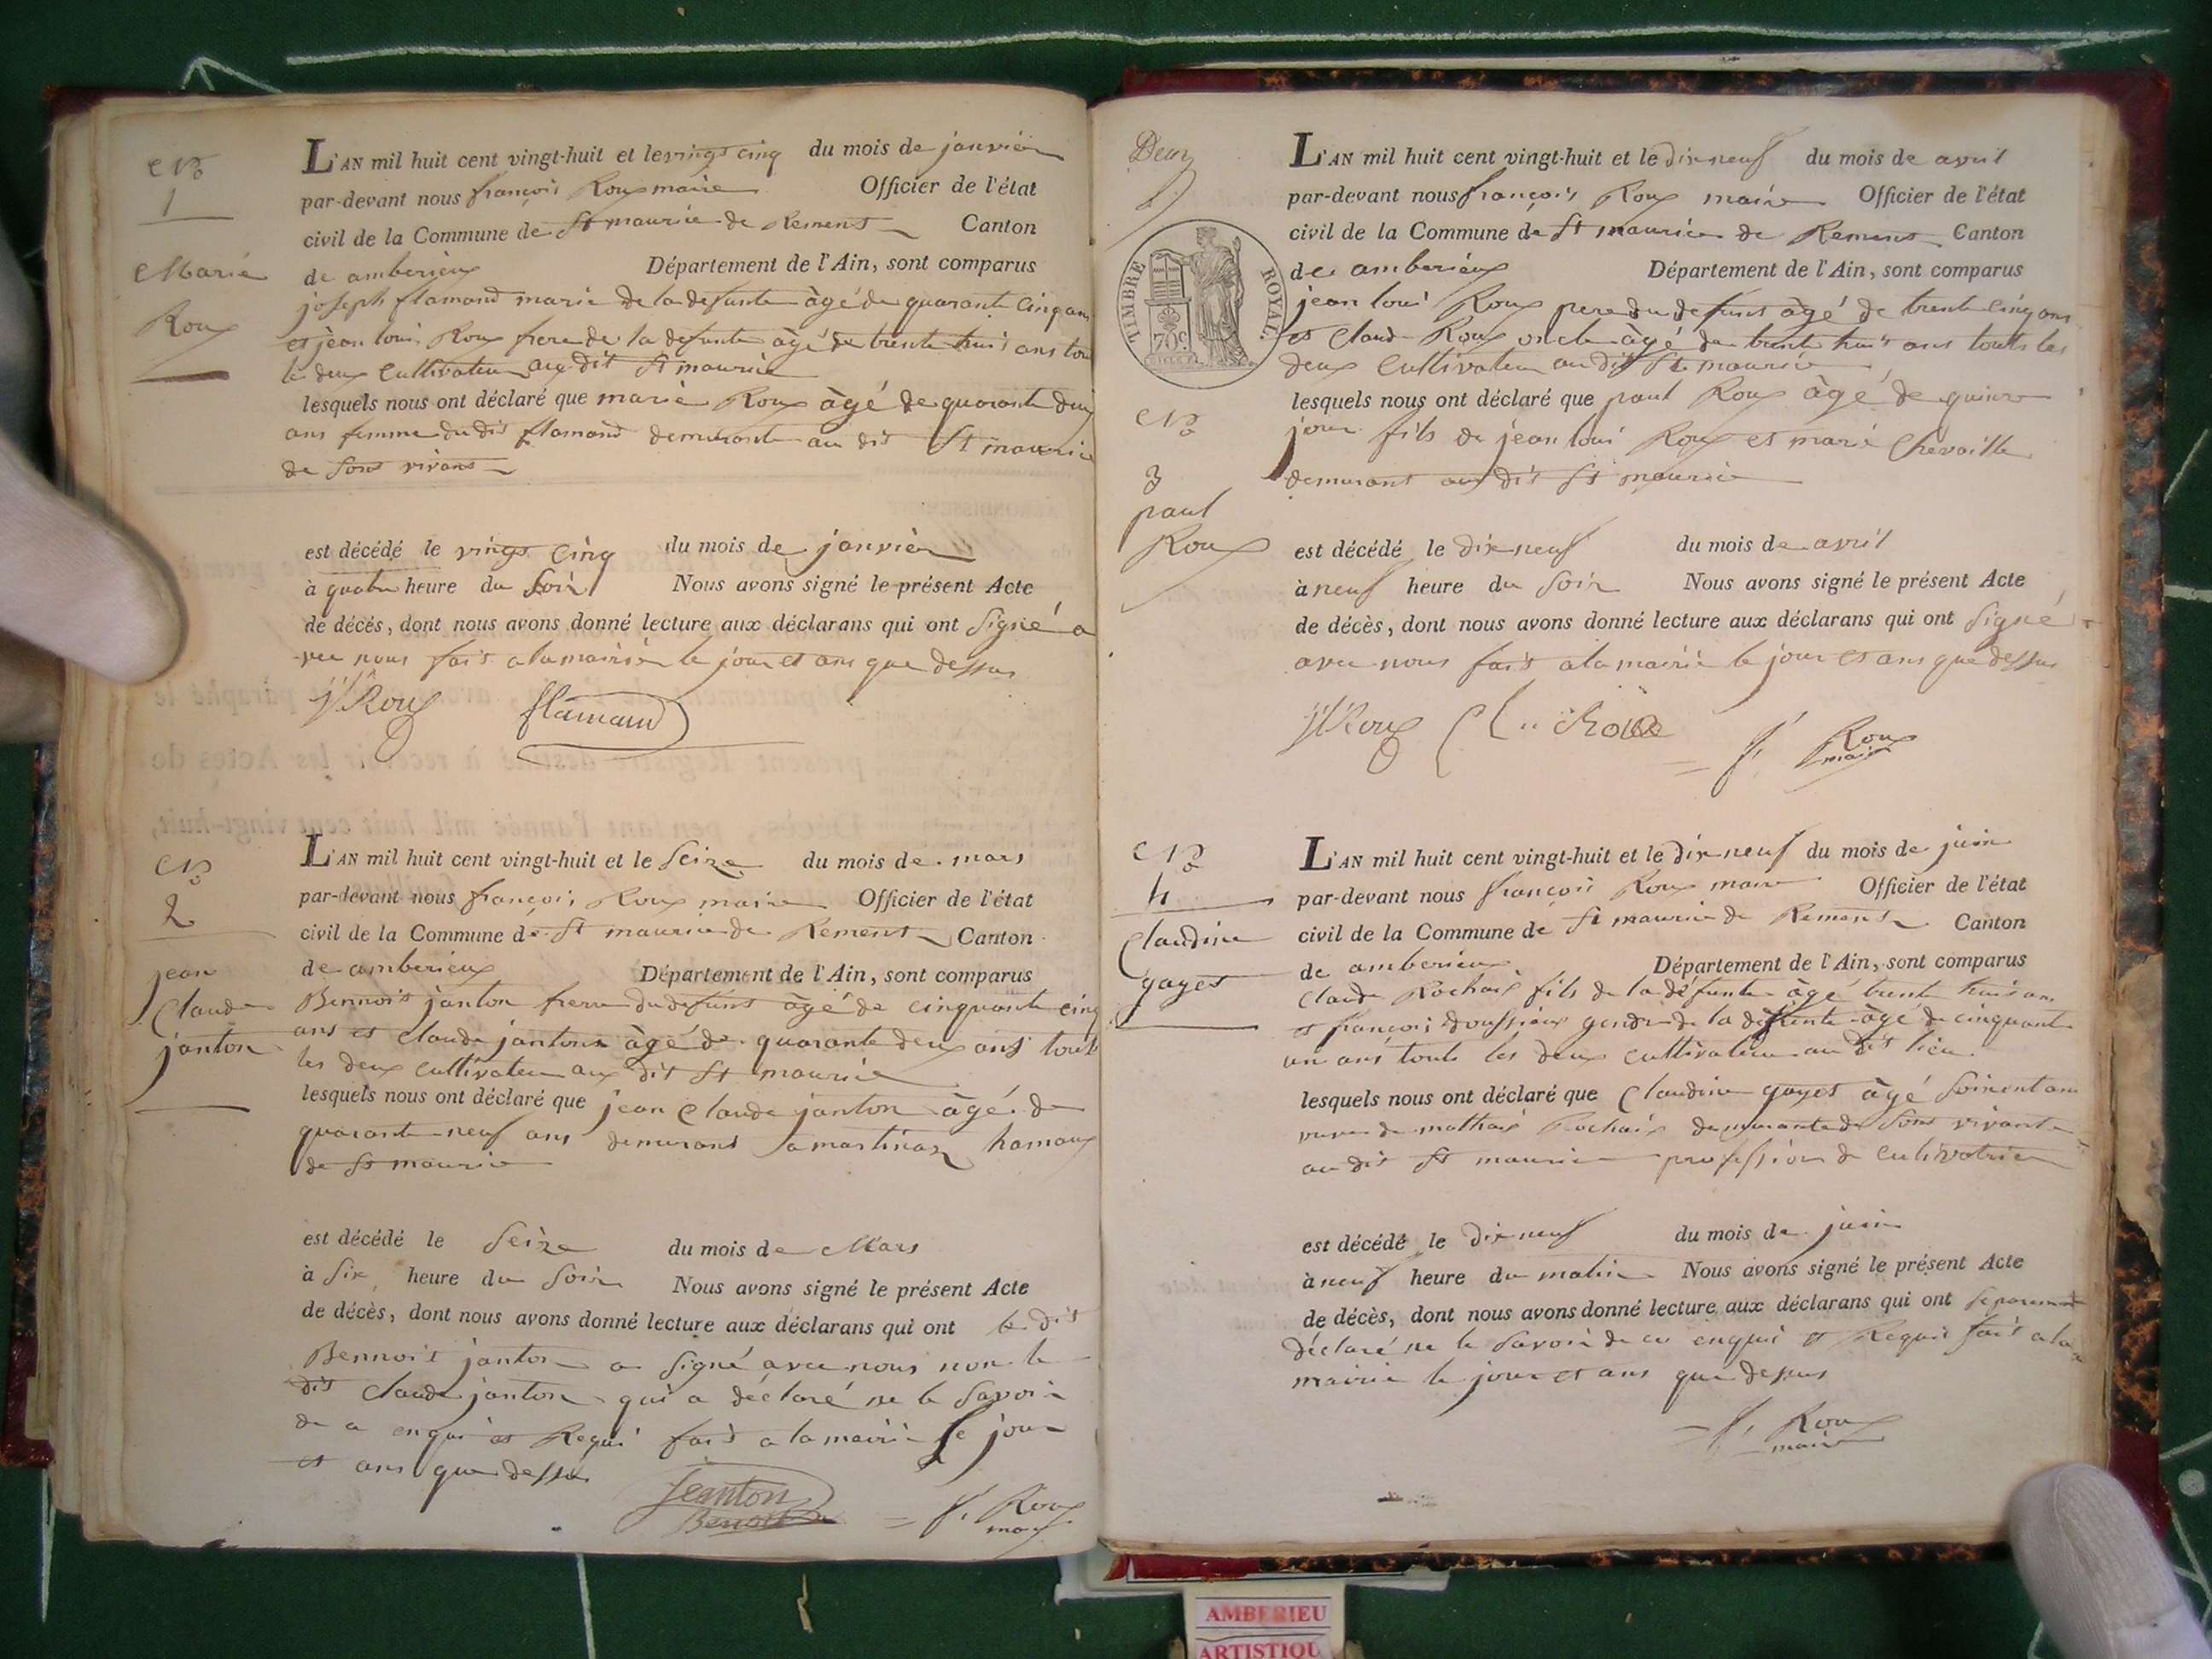 No
1
Marie
Roux
L'AN mil huit cent vingt-huit et le vingt cinq du mois de janvier
par-devant nous françois Roux maire Officier de l'état
civil de la Commune de St maurice de Remens Canton
de amberieux Département de l'Ain, sont comparus
joseph flamand marie de la defunte âgé de quarante cinq ans
et jean loui Roux frere de la defunte âgé de trente huit ans tou
le deux cultivateur au dit St maurice
lesquels nous ont déclaré que marie Roux âgé de quarante deux
ans femme du dit flamand demurante au dit St maurice
de sont vivant
est décédé le vingt cinq du mois de janvier
à quatre heure du soir Nous avons signé le présent Acte
de décès, dont nous avons donné lecture aux déclarans qui ont signé a
vec nous fait a la mairie le jour et ans que dessus
Roux flamand
No
2
jean
Claude
janton
L'AN mil huit cent vingt-huit et le seize du mois de mars
par-devant nous françois Roux maire Officier de l'état
civil de la Commune de St maurice de Remens Canton
de amberieux Département de l'Ain, sont comparus
Bennoit janton frere du defunt âgé de cinquante cinq
ans et Claude janton âgé de quarante deux ans tout
les deux cultivateur aux dit St maurice
lesquels nous ont déclaré que jean Claude janton âgé de
quarante neuf ans demurant a martinaz hamaux
de St maurice
est décédé le seize du mois de Mars
à six heure du soir Nous avons signé le présent Acte
de décès, dont nous avons donné lecture aux déclarans qui ont le dit
Bennoit janton a signé avec nous non le
dit Claude janton qui a déclaré ne le savoir
de a enqui et Requi fait a la mairie le jour
et ans que dessu
Jeanton
Benoit
f. Roux
Deux
TIMBRE ROYAL.
70c.
No
3
paul
Roux
L'AN mil huit cent vingt-huit et le dix neuf du mois de avril
par-devant nous françois Roux maire Officier de l'état
civil de la Commune de St maurice de Remens Canton
de amberieux Département de l'Ain, sont comparus
jean loui Roux pere du defunt âgé de trente cinq ans
et Claude Roux oncle âgé de trente huit ans touts les
deux cultivateur au dit St maurice
lesquels nous ont déclaré que paul Roux âgé de quinze
jour fils de jean loui Roux et marie Chevaille
demurant aux dit St maurice
est décédé le dix neuf du mois de avril
à neuf heure du soir Nous avons signé le présent Acte
de décès, dont nous avons donné lecture aux déclarans qui ont signé
avec nous fait a la mairie le jour et ans que dessus
Roux
f. Roux
maire
No
4
Claudine
gayet
L'AN mil huit cent vingt-huit et le dix neuf du mois de juin
par-devant nous françois Roux maire Officier de l'état
civil de la Commune de St maurice de Remens Canton
de amberieux Département de l'Ain, sont comparus
Claude Rochaix fils de la défunte âgé trente huit ans
et françois Doussieux gendre de la defunte âgé de cinquante
un ans touts les deux cultivateur au dit lieu
lesquels nous ont déclaré que Claudine gayet âgé ans
veuve de mathaix Rochaix demurante de sont vivante
au dit St maurice profession de cultivatrice
est décédé le dix neuf du mois de juin
à neuf heure du matin Nous avons signé le présent Acte
de décès, dont nous avons donné lecture aux déclarans qui ont
déclaré ne le savoir de ce enqui et Requi fait a la
mairie le jour et ans que dessus
f. Roux
maire
AMBERIEU
ARTISTIQU